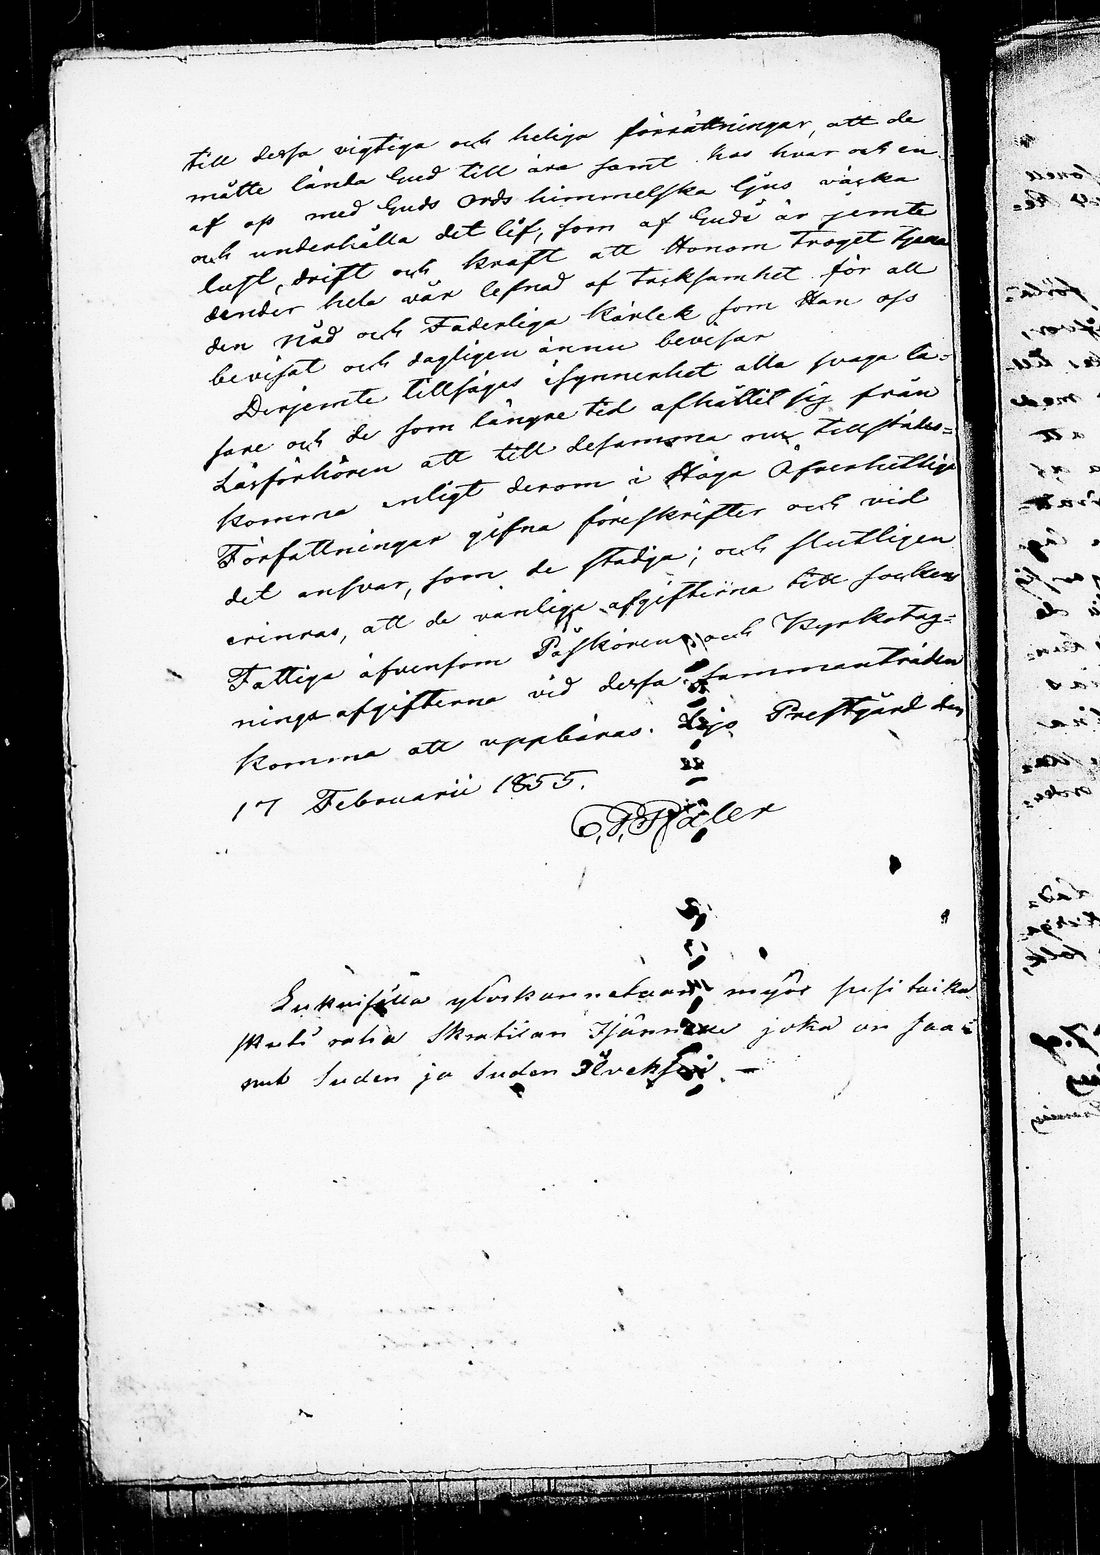 till dessa vigtiga och heliga förrättningar, att de
måtte lända Gud till ära samt hos hvar och en
af oss med Guds ords himmelska ljus väcka
och underhålla det lif, som af Gudi är jemte
lust, drift och kraft att Honom troget tjena
under hela vår lefnad af tacksamhet för all
den nåd och Faderliga kärlek som Han oss
bevisat och dagligen ännu bevisar
Derjemte tillsäges isynnerhet alla svaga lä-
sare och de som längre tid afhållit sig från
Läsförhören att till desamma nu tillstädes-
komma enligt derom i Höga Öfverhetliga
Författningar gifna föreskrifter och vid
det ansvar, som de stadga; och slutligen
erinras, att de vanliga afgifterna till sockens
Fattiga äfvensom Påskören och Kyrkotag-
nings afgifterna vid dessa sammanträden
komma att uppbäras. Prestgård den
17 Februarii 1855.
ylöskannetaan myös
raha joka on saa-
nut Suden ja Suden